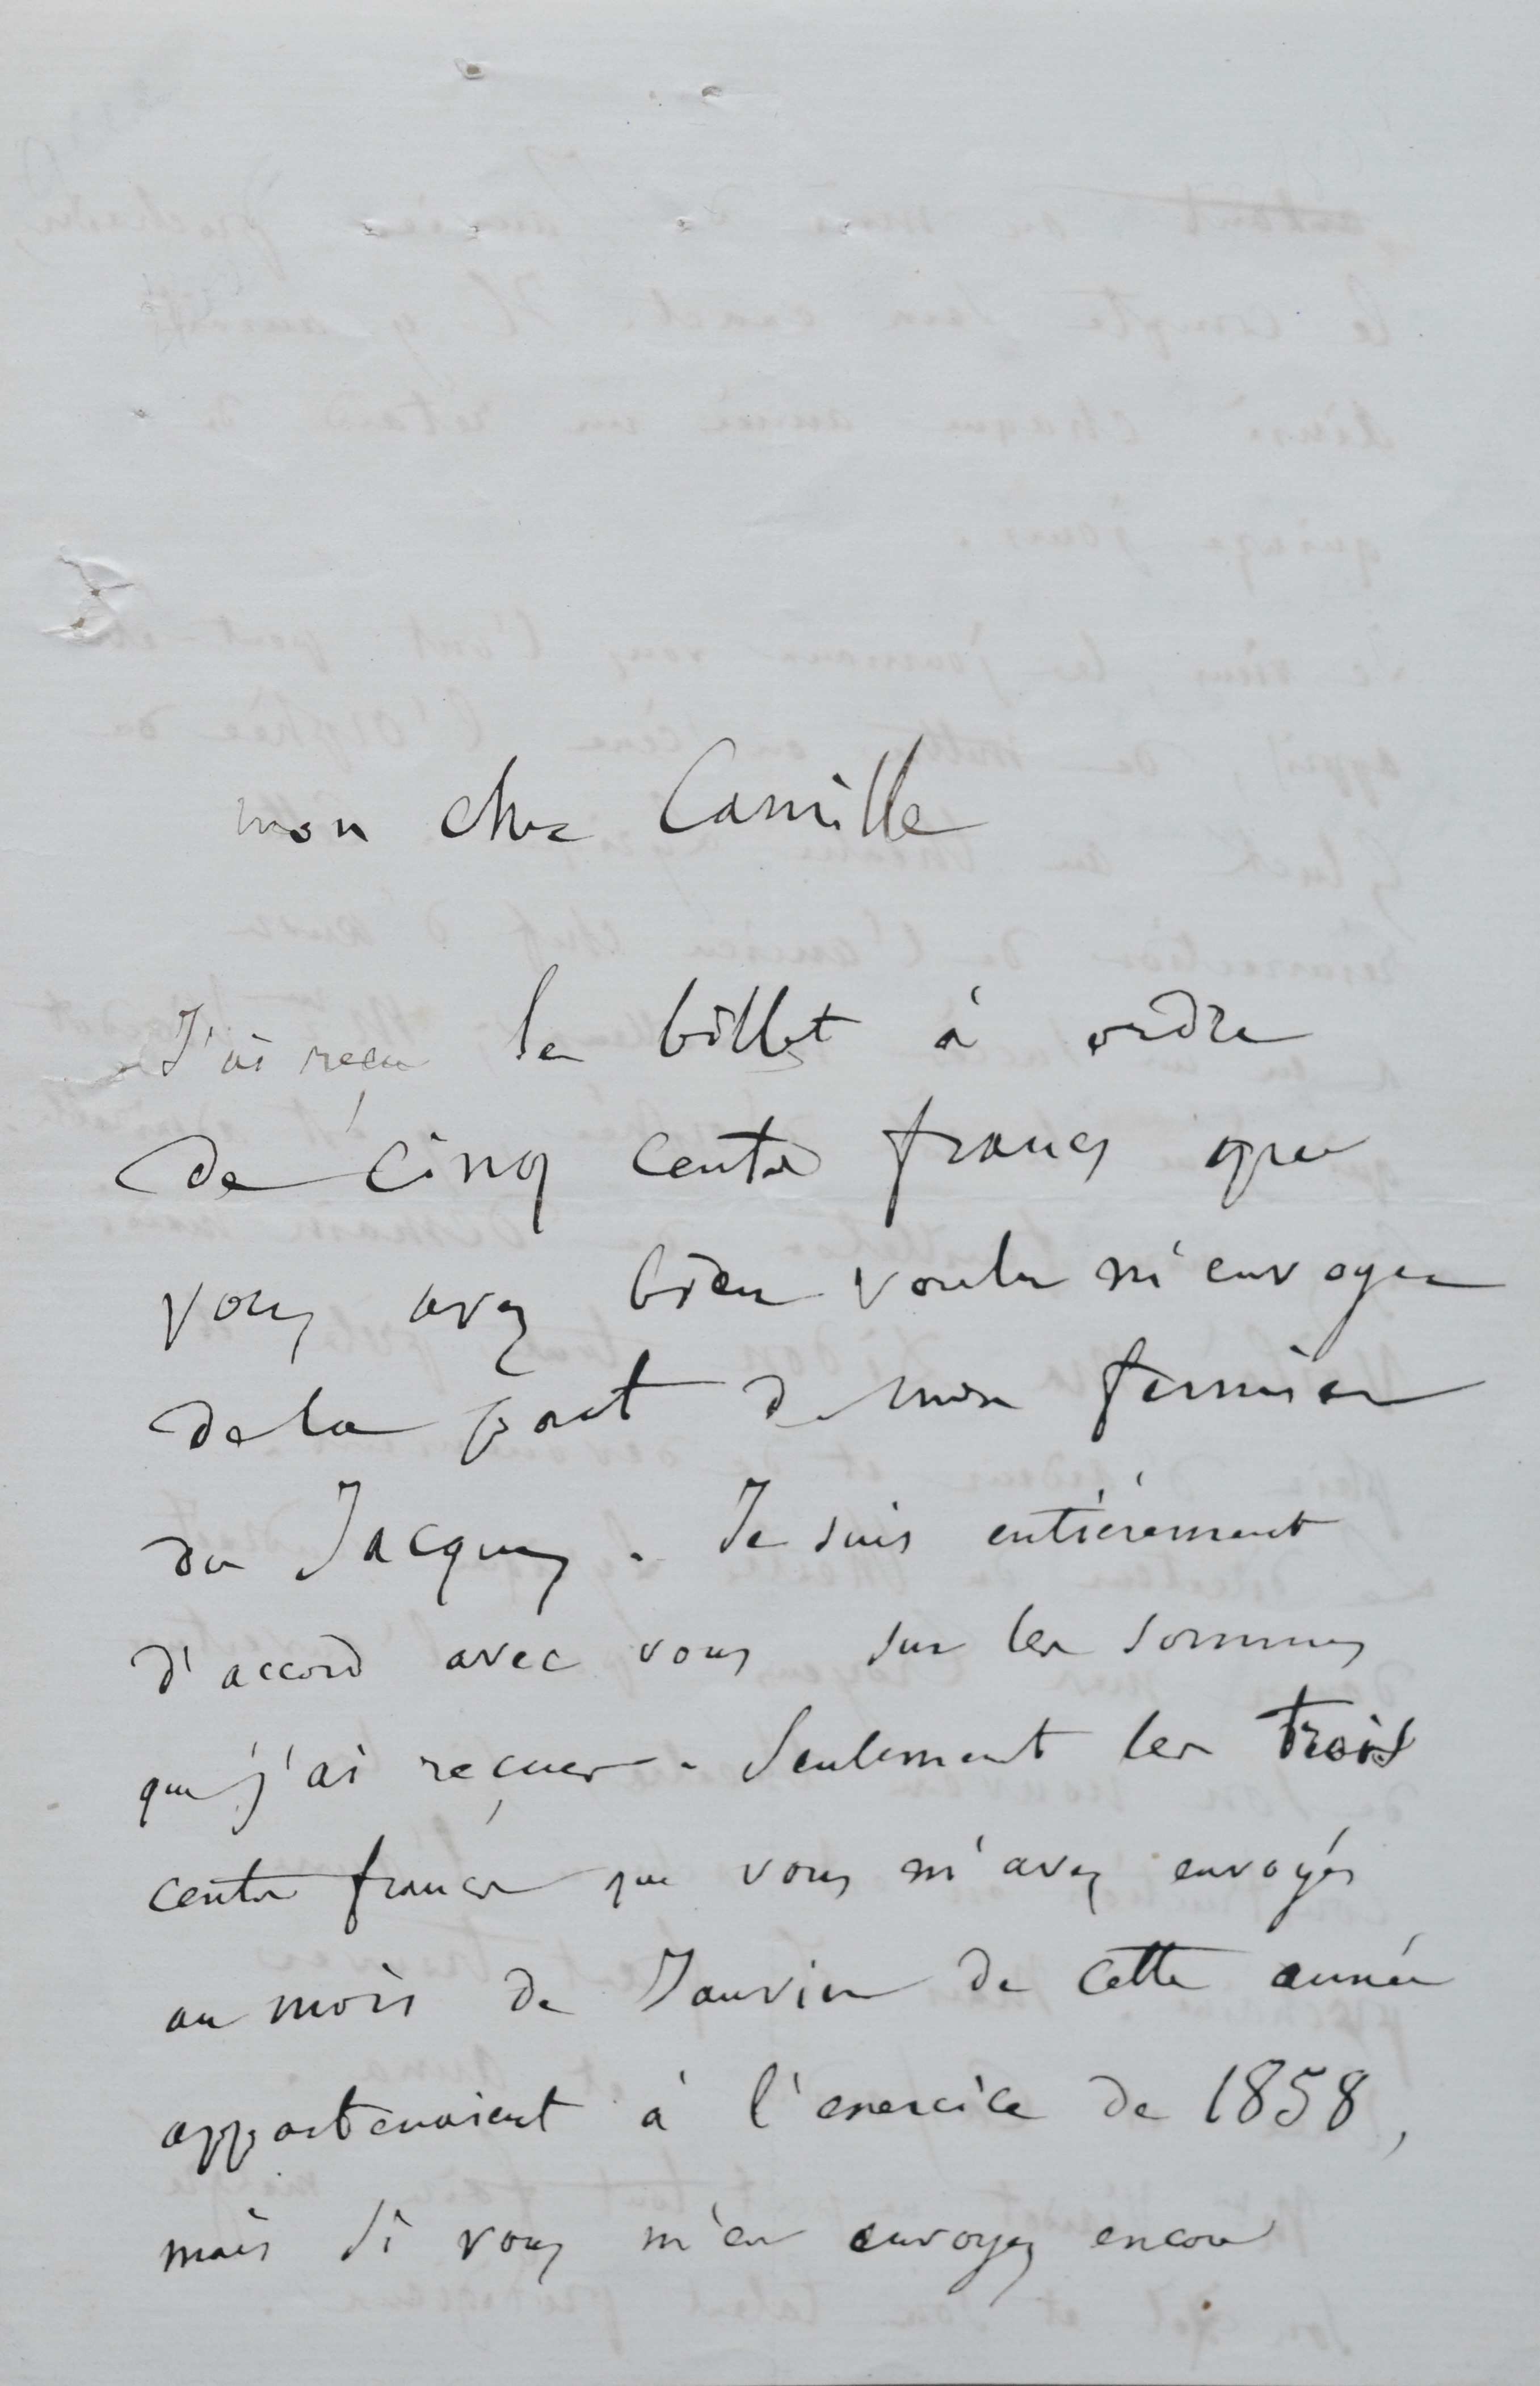 mon cher Camille
J'ai reçu le billet à ordre
de cinq cents francs que
vous avez bien voulu m'envoyer
de la part de mon fermier
du Jacques. Je suis entièrement
d'accord avec vous sur les sommes
que j'ai reçues. Seulement les trois
cents francs que vous m'avez envoyés
au mois de Janvier de cette année
appartenaient à l'exercice de 1858,
mais si vous m'en envoyez encore